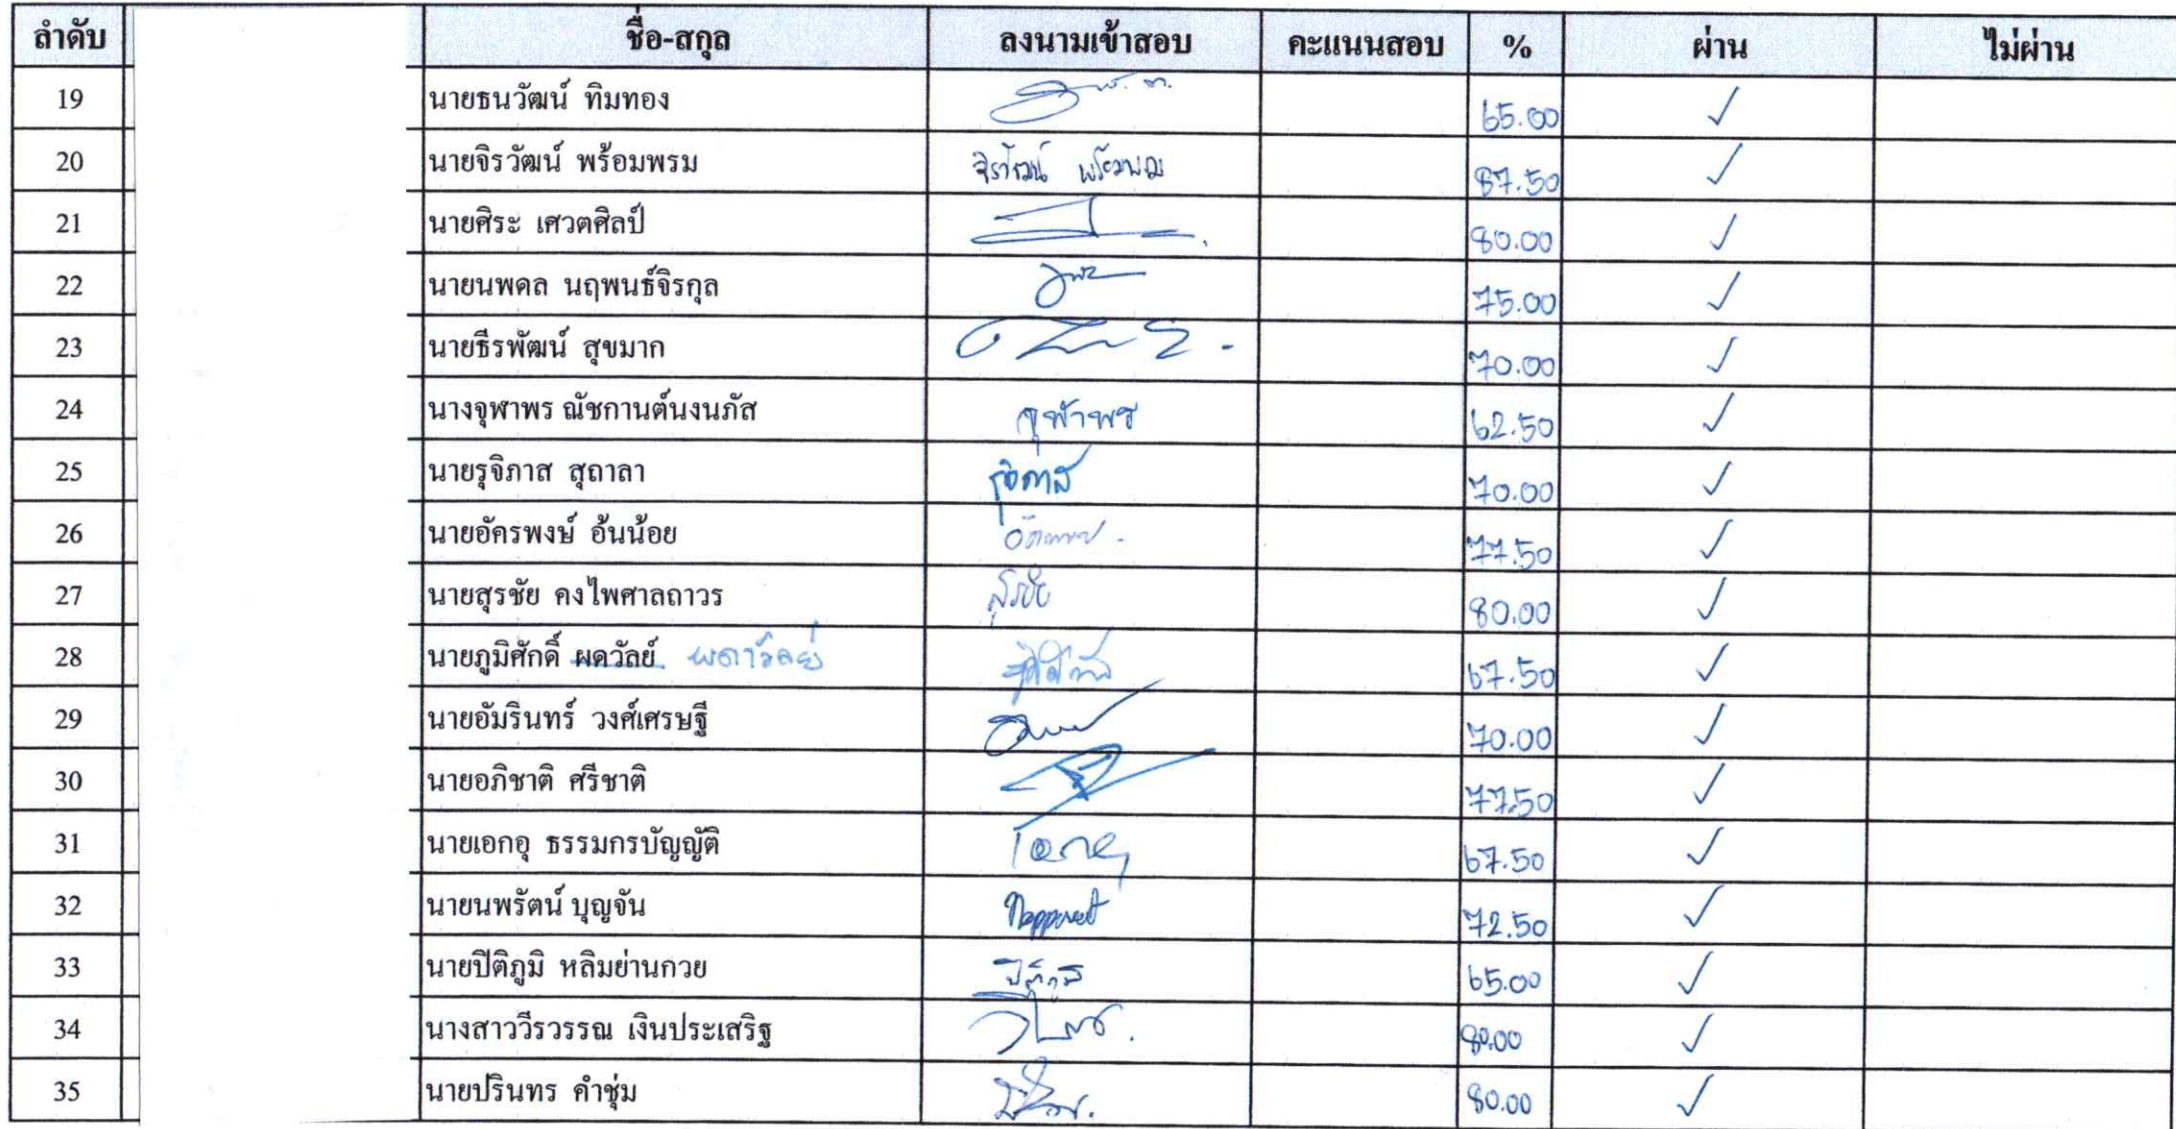 ลำดับ ชื่อ-สกุล ลงนามเข้าสอบ คะแนนสอบ % ผ่าน ไม่ผ่าน
19 นายธนวัฒน์ ทิมทอง 65.00 ✓
20 นายจิรวัฒน์ พร้อมพรม จิรวัฒน์ พร้อมพรม 87.50 ✓
21 นายศิระ เศวตศิลป์ 80.00 ✓
22 นายนพดล นฤพนธ์จิรกุล 75.00 ✓
23 นายธีรพัฒน์ สุขมาก 70.00 ✓
24 นางจุฬาพร ณัชกานต์นงนภัส จุฬาพร 62.50 ✓
25 นายรุจิภาส สุถาลา รุจิภาส 70.00 ✓
26 นายอัครพงษ์ อ้นน้อย 77.50 ✓
27 นายสุรชัย คงไพศาลถาวร สุรชัย 80.00 ✓
28 นายภูมิศักดิ์ ผดวัลย์ ผดาวัลย์ 67.50 ✓
29 นายอัมรินทร์ วงศ์เศรษฐี 70.00 ✓
30 นายอภิชาติ ศรีชาติ 77.50 ✓
31 นายเอกอุ ธรรมกรบัญญัติ 67.50 ✓
32 นายนพรัตน์ บุญจัน Nopparat 72.50 ✓
33 นายปิติภูมิ หลิมย่านกวย ปิติภูมิ 65.00 ✓
34 นางสาววีรวรรณ เงินประเสริฐ 80.00 ✓
35 นายปรินทร คำชุ่ม 80.00 ✓